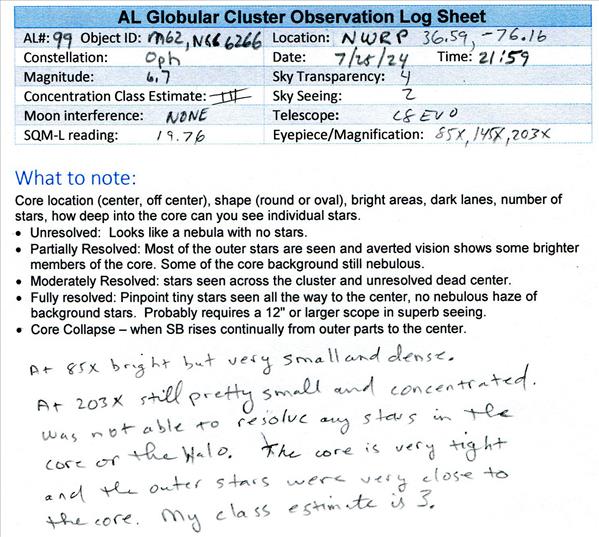 AL Globular Cluster Observation Log Sheet
AL#: 99 Object ID: M62, NGC 6266 Location: NWRP 36.59, -76.16
Constellation: Oph Date: 7/25/24 Time: 21:59
Magnitude: 6.7 Sky Transparency: 4
Concentration Class Estimate: III Sky Seeing: 2
Moon interference: NONE Telescope: C8 EVO
SQM-L reading: 19.76 Eyepiece/Magnification: 85X, 145X, 203X
What to note:
Core location (center, off center), shape (round or oval), bright areas, dark lanes, number of
stars, how deep into the core can you see individual stars.
• Unresolved: Looks like a nebula with no stars.
• Partially Resolved: Most of the outer stars are seen and averted vision shows some brighter
members of the core. Some of the core background still nebulous.
• Moderately Resolved: stars seen across the cluster and unresolved dead center.
• Fully resolved: Pinpoint tiny stars seen all the way to the center, no nebulous haze of
background stars. Probably requires a 12" or larger scope in superb seeing.
• Core Collapse – when SB rises continually from outer parts to the center.
At 85X bright but very small and dense.
At 203X still pretty small and concentrated.
Was not able to resolve any stars in the
core or the Halo. The core is very tight
and the outer stars were very close to
the core. My class estimate is 3.